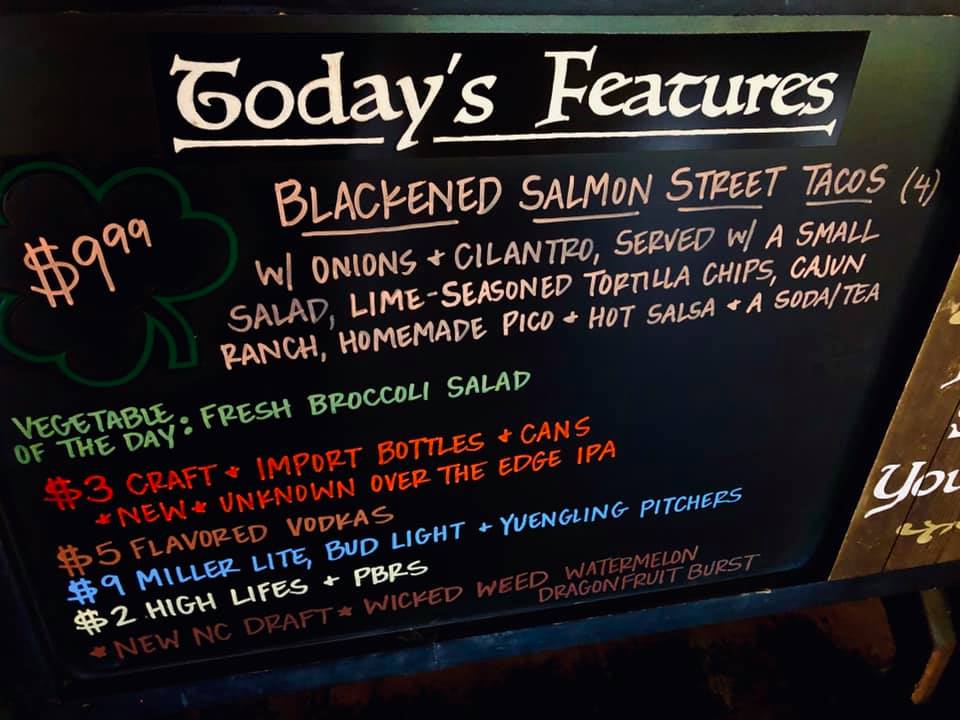 Today's Features
$9.99
BLACKENED SALMON STREET TACOS (4)
W/ ONIONS + CILANTRO, SERVED W/ A SMALL
SALAD, LIME-SEASONED TORTILLA CHIPS, CAJUN
RANCH, HOMEMADE PICO + HOT SALSA + A SODA/TEA
VEGETABLE
OF THE DAY: FRESH BROCCOLI SALAD
$3 CRAFT + IMPORT BOTTLES + CANS
*NEW* UNKNOWN OVER THE EDGE IPA
$5 FLAVORED VODKAS
$9 MILLER LITE, BUD LIGHT + YUENGLING PITCHERS
$2 HIGH LIFES + PBRS
*NEW NC DRAFT* WICKED WEED WATERMELON
DRAGONFRUIT BURST
You